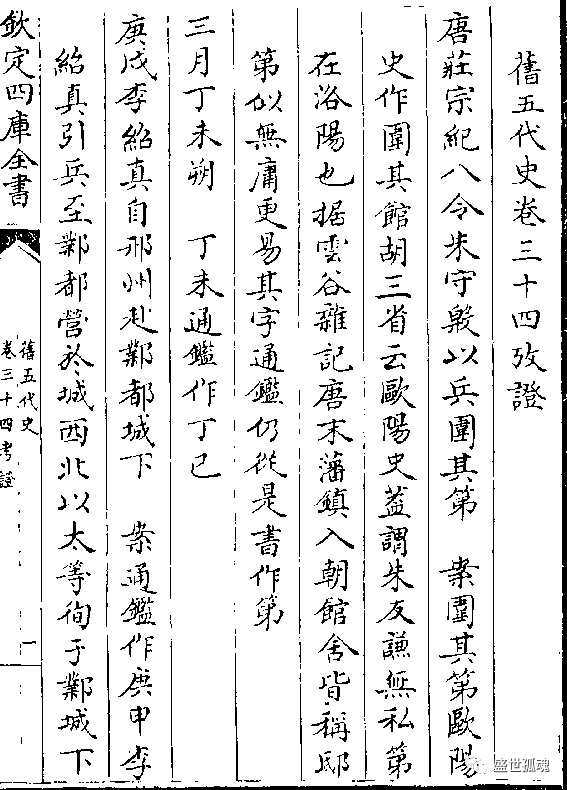 舊五代史卷三十四攷證
唐莊宗紀八令朱守殷以兵圍其第　案圍其第歐陽
史作圍其館胡三省云歐陽史葢謂朱友謙無私第
在洛陽也據雲谷雜記唐末藩鎮入朝館舍皆稱邸
第似無庸更易其字通鑑仍從是書作第
三月丁未朔　丁未通鑑作丁巳
庚戌李紹真自邢州赴鄴都城下　案通鑑作庚申李
紹真引兵至鄴都營於城西北以太等徇于鄴城下
欽定四庫全書
舊五代史
卷三十四考證
一
盛世孤魂